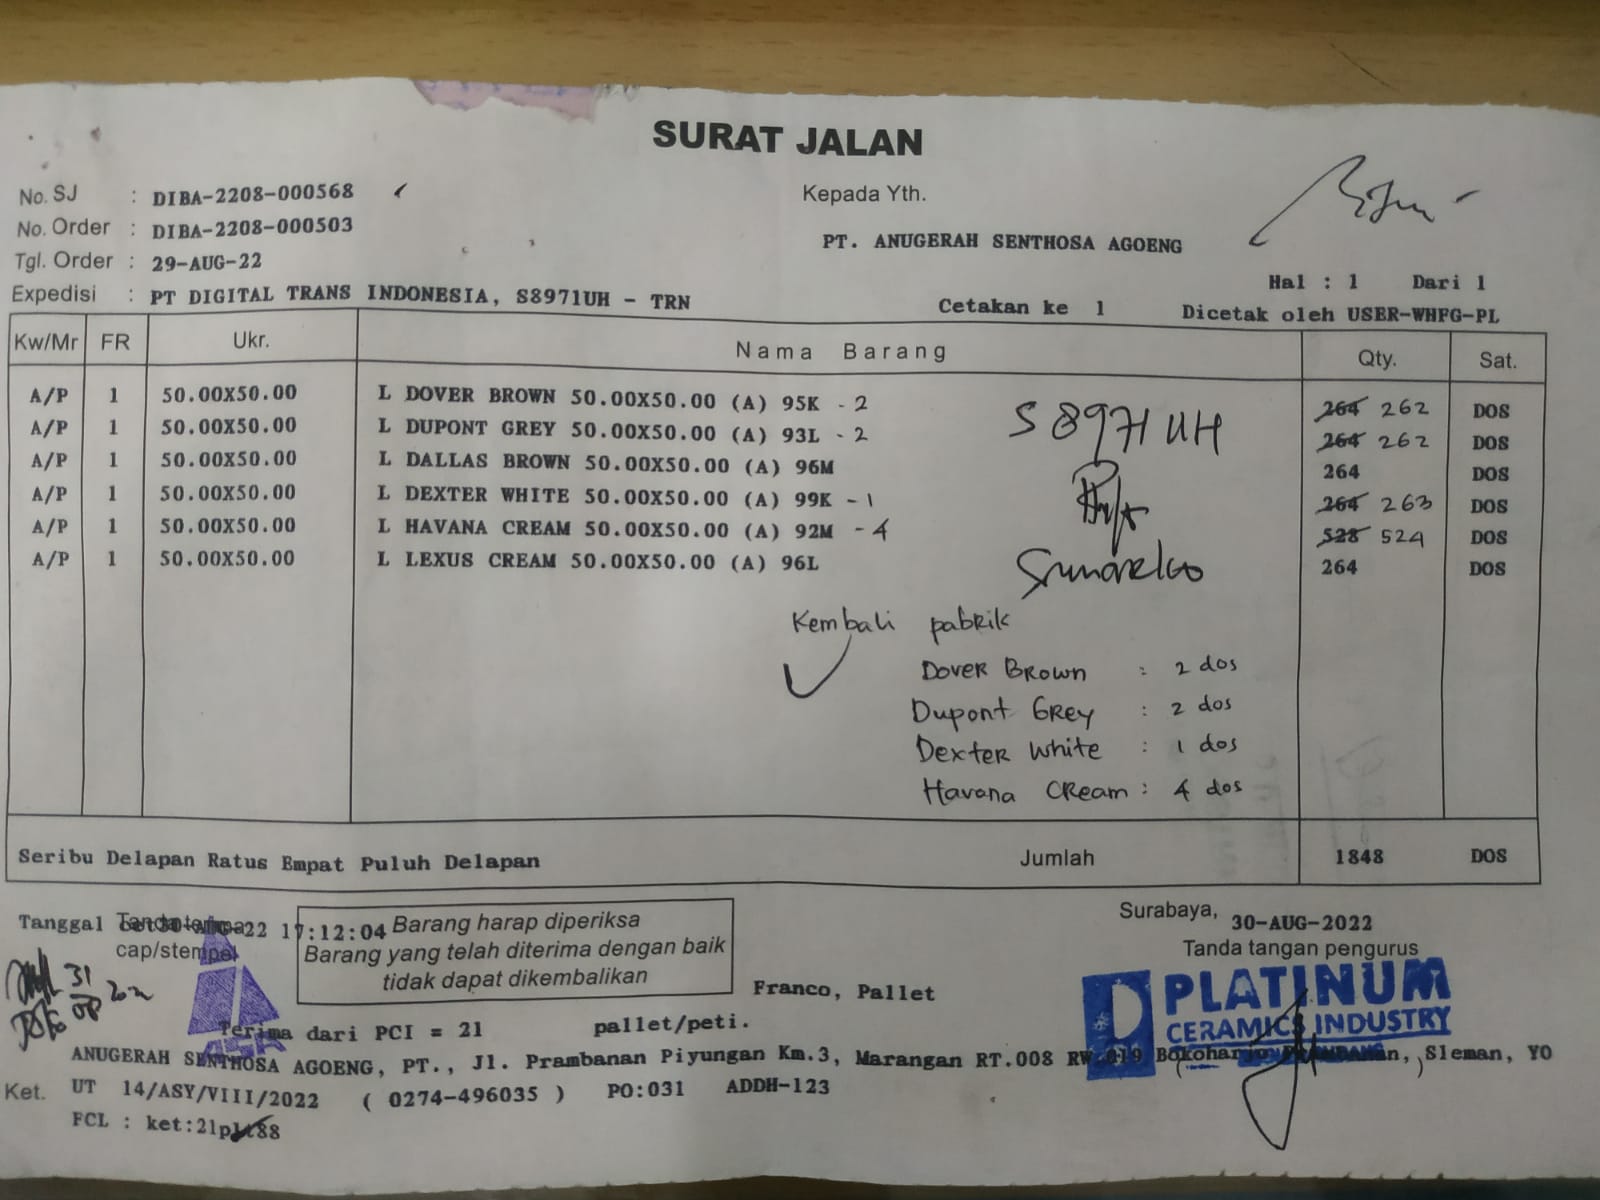 SURAT JALAN
No. SJ : DIBA-2208-000568
No. Order : DIBA-2208-000503
Tgl. Order : 29-AUG-22
Expedisi : PT DIGITAL TRANS INDONESIA, S8971UH - TRN
Kepada Yth.
PT. ANUGERAH SENTHOSA AGOENG
Hal : 1 Dari 1
Cetakan ke 1 Dicetak oleh USER-WHFG-PL
Kw/Mr FR Ukr. Nama Barang Qty. Sat.
A/P 1 50.00X50.00 L DOVER BROWN 50.00X50.00 (A) 95K - 2 264 262 DOS
A/P 1 50.00X50.00 L DUPONT GREY 50.00X50.00 (A) 93L - 2 264 262 DOS
A/P 1 50.00X50.00 L DALLAS BROWN 50.00X50.00 (A) 96M 264 DOS
A/P 1 50.00X50.00 L DEXTER WHITE 50.00X50.00 (A) 99K - 1 264 263 DOS
A/P 1 50.00X50.00 L HAVANA CREAM 50.00X50.00 (A) 92M - 4 528 524 DOS
A/P 1 50.00X50.00 L LEXUS CREAM 50.00X50.00 (A) 96L 264 DOS
S 8971 UH
Kembali pabrik
Dover Brown : 2 dos
Dupont Grey : 2 dos
Dexter White : 1 dos
Havana Cream : 4 dos
Seribu Delapan Ratus Empat Puluh Delapan Jumlah 1848 DOS
Tanggal 17:12:04
cap/stempel
Barang harap diperiksa
Barang yang telah diterima dengan baik
tidak dapat dikembalikan
Surabaya, 30-AUG-2022
Tanda tangan pengurus
PLATINUM
CERAMICS INDUSTRY
Franco, Pallet
Terima dari PCI = 21 pallet/peti.
ANUGERAH SENTHOSA AGOENG, PT., Jl. Prambanan Piyungan Km.3, Marangan RT.008 RW.019 Bokoharjo Sleman, YO
Ket. UT 14/ASY/VIII/2022 ( 0274-496035 ) PO:031 ADDH-123
FCL :